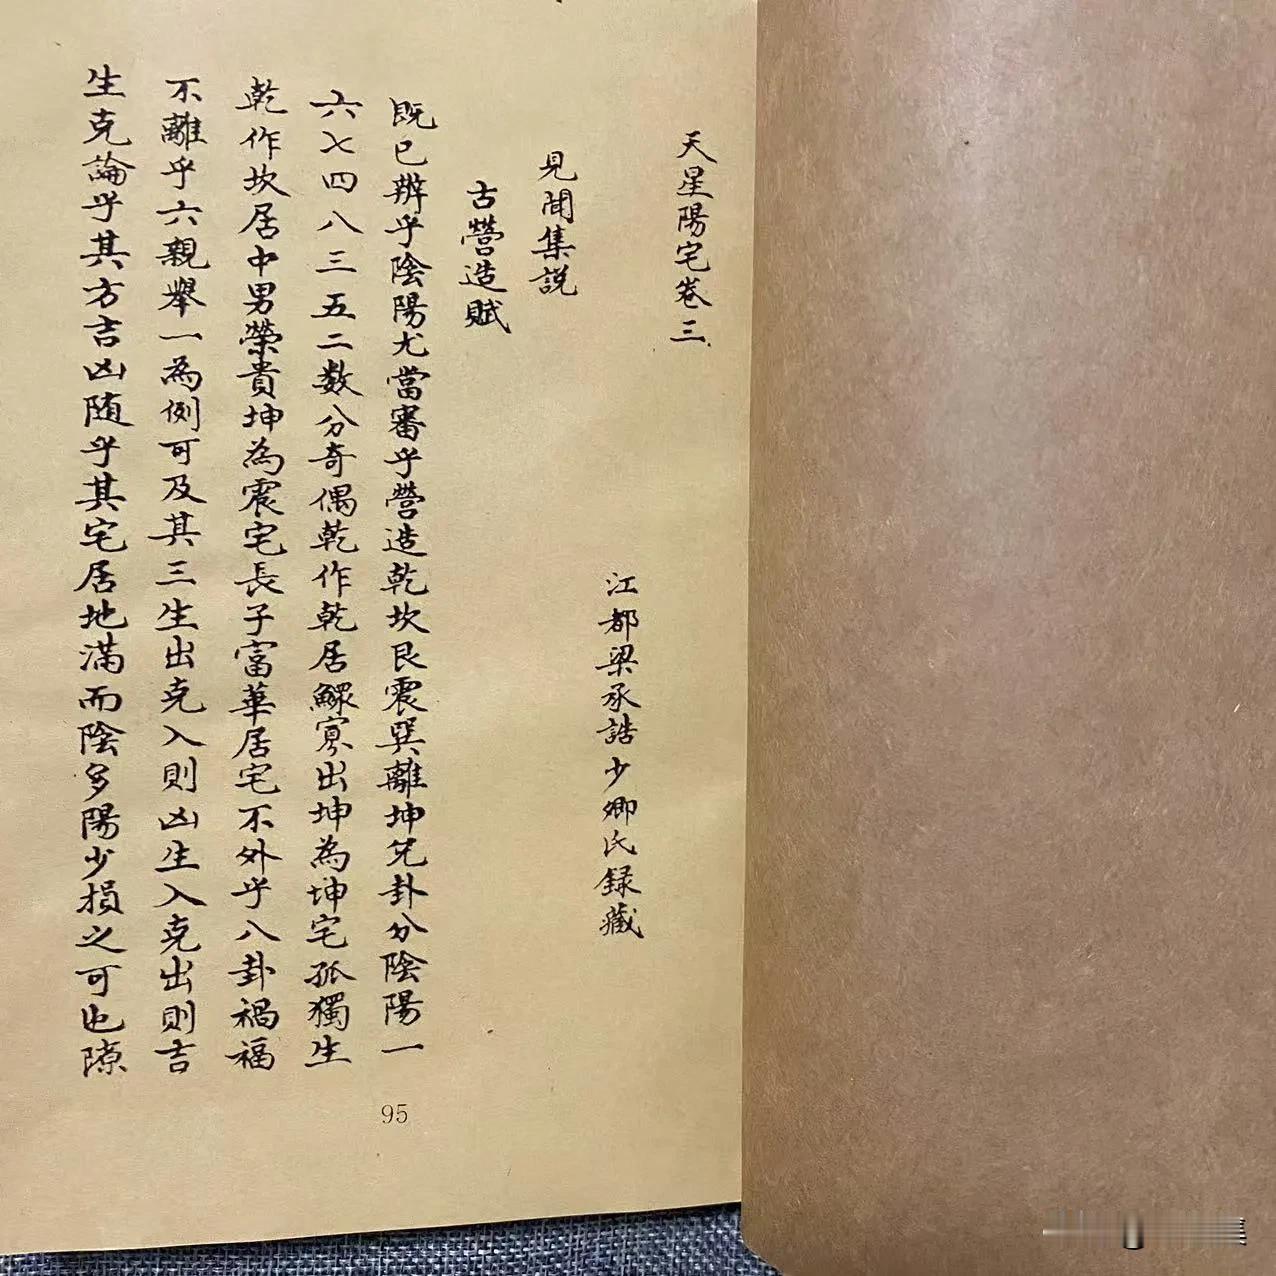 天星陽宅卷三
江都梁承誥少卿氏録藏
見聞集説
古營造賦
既已辨乎陰陽尤當審乎營造乾坎艮震巽離坤兌卦分陰陽一
六七四八三五二数分奇偶乾作乾居鰥寡出坤為坤宅孤獨生
乾作坎居中男榮貴坤為震宅長子富華居宅不外乎八卦禍福
不離乎六親舉一為例可及其三生出克入則凶生入克出則吉
生克論乎其方吉凶随乎其宅居地滿而陰多陽少損之可也隙
95